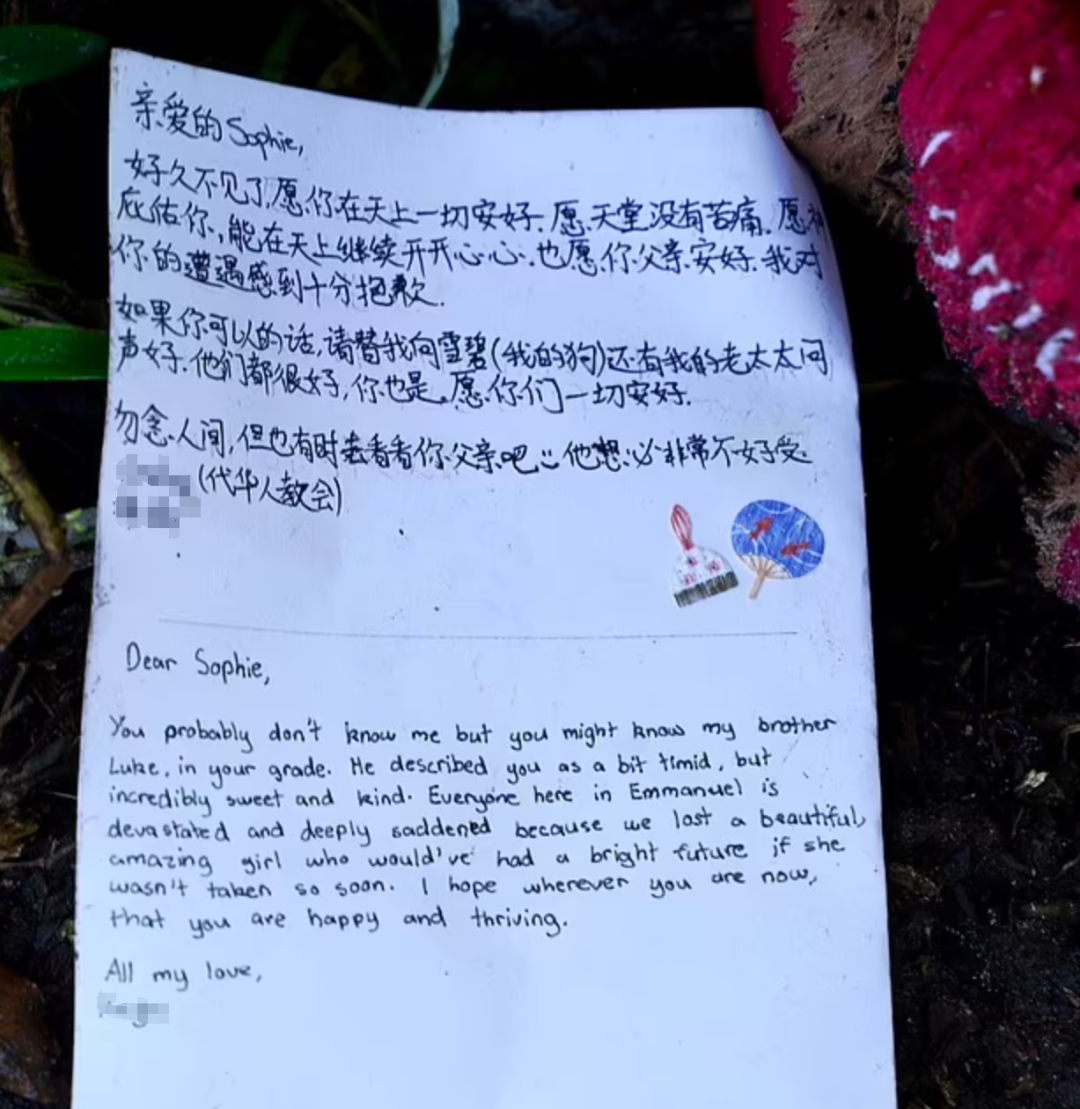 亲爱的Sophie,
好久不见了,愿你在天上一切安好.愿天堂没有苦痛.愿神
庇佑你,能在天上继续开开心心.也愿你父亲安好.我对
你的遭遇感到十分抱歉.
如果你可以的话,请替我向雪碧(我的狗)还有我的老太太问
声好.他们都很好,你也是.愿你们一切安好.
勿念人间,但也有时去看看你父亲吧.. 他想必非常不好受.
(代华人教会)
Dear Sophie,
You probably don't know me but you might know my brother
Luke, in your grade. He described you as a bit timid, but
incredibly sweet and kind. Everyone here in Emmanuel is
devastated and deeply saddened because we lost a beautiful,
amazing girl who would've had a bright future if she
wasn't taken so soon. I hope wherever you are now,
that you are happy and thriving.
All my love,